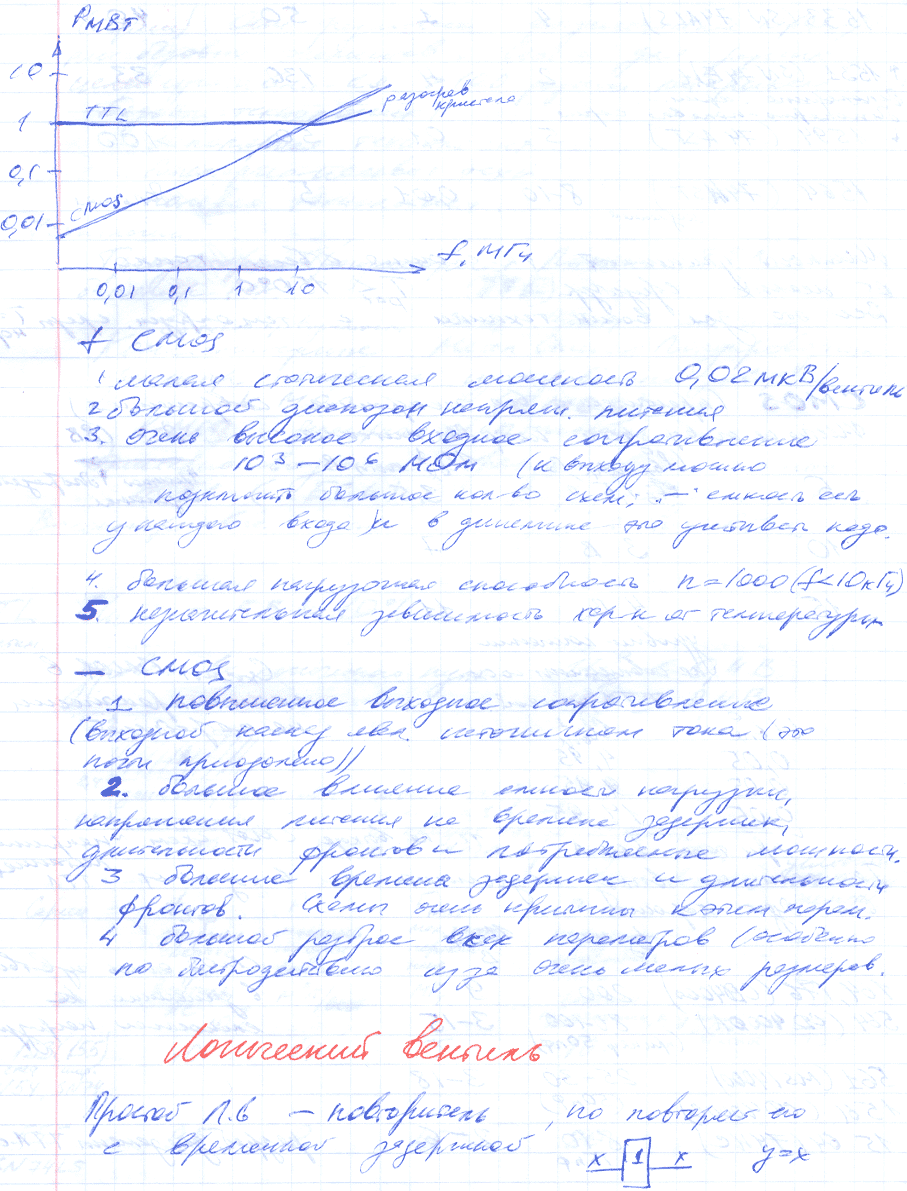 P мВт
10
TTL
разогрев
кристала
1
0,1
CMOS
0,01
f, МГц
0,01 0,1 1 10
+ CMOS
1 малая статическая мощность 0,02 мкВ/вентиль
2 большой диапозон напряж. питания
3. очень высокое входное сопративление
10³ – 10⁶ МОм (к выходу можно
подключить большое кол-во схем; "—" емкость есть
у каждого входа и в динамике это учитывать надо.
4. большая нагрузочная способность n=1000 (f<10кГц)
5. незначительная зависимость хар-к от температуры
— CMOS
1 повышенное выходное сопративление
(выходной каскад явл. источником тока (это
почти преодолено))
2. большое влияние емкости нагрузки,
напряжения питания на времена задержек,
длительности фронтов и потребляемые мощности.
3 большие времена задержек и длительности
фронтов. Схемы очень критичны к этим парам.
4 большой разброс всех параметров (особенно
по быстродействию из за очень малых размеров.
Логический вентиль
Простой Л.в – повторитель, но повторяет его
с временной задержкой
x 1 x y=x